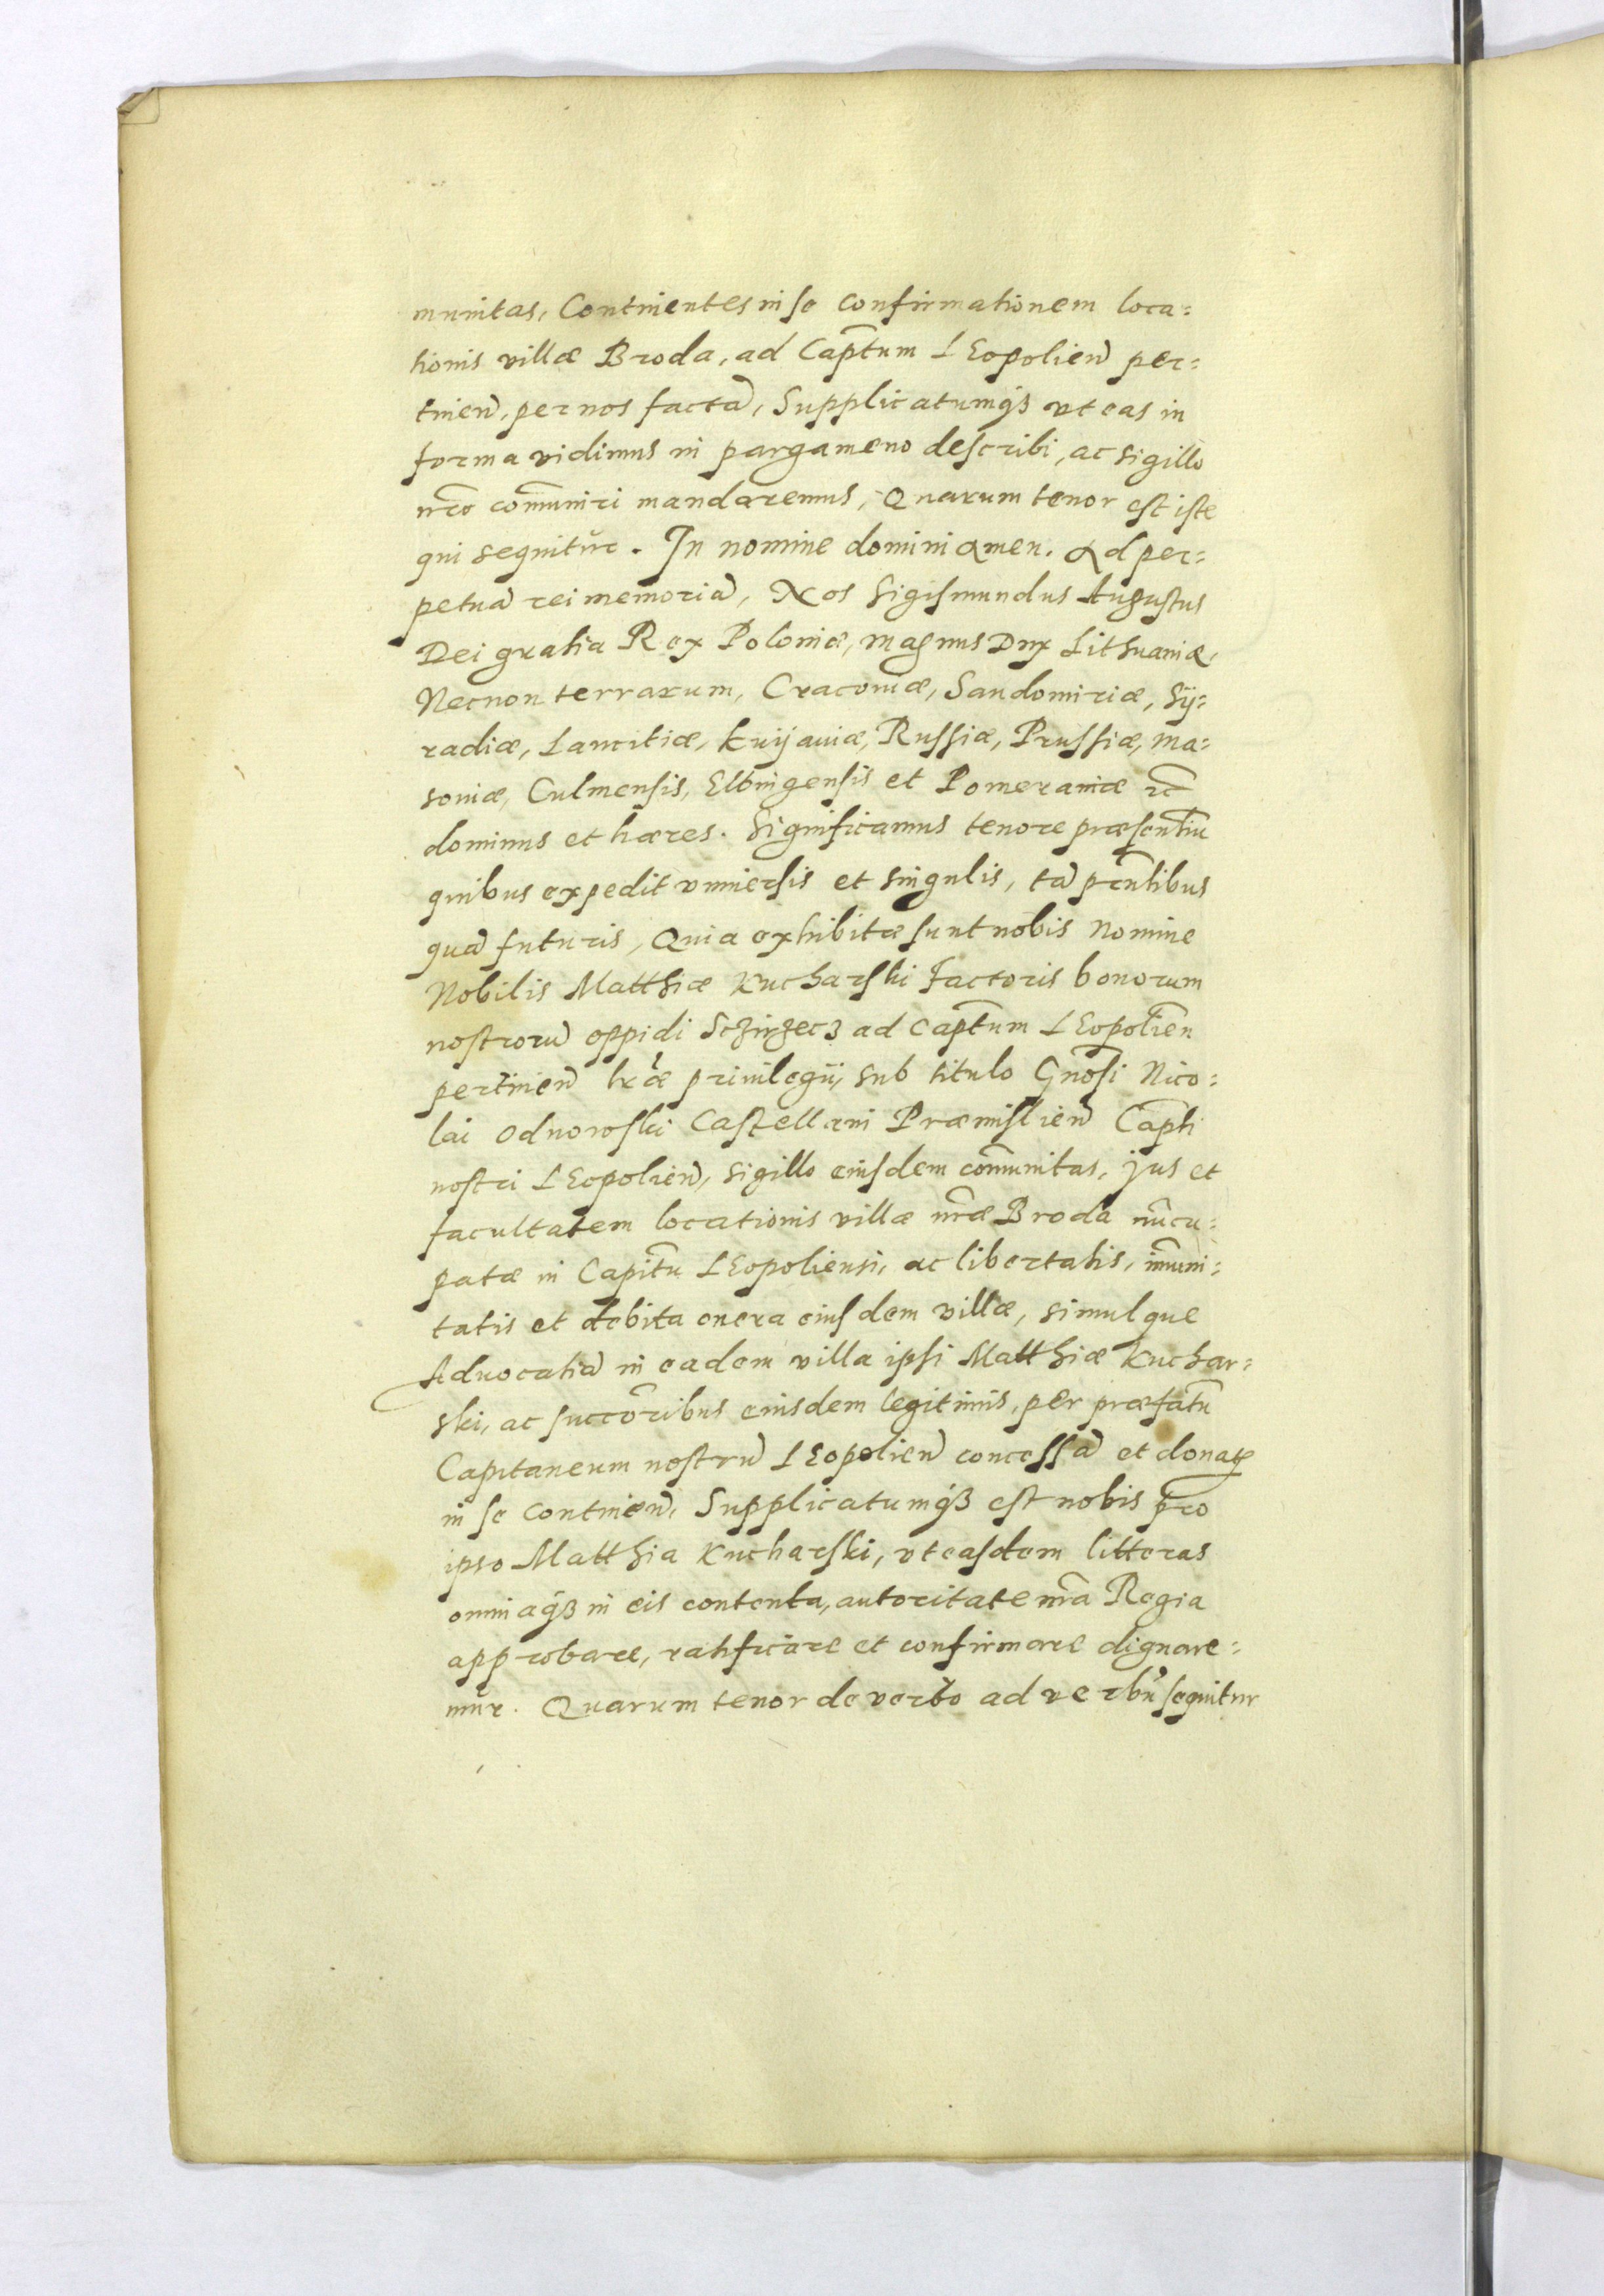 munitas, Continentes in se confirmationem loca=
tionis villæ Broda, ad Cap̃tum LEopolien̄ per=
tinen̄, per nos factā, Supplicatumq̃ʒ vt eas in
forma vidimus in pargameno describi, ac sigillo
nr̃o com̃uniri mandaremus, Quarum tenor est iste
qui sequitur. In nomine domini amen. Ad per=
petuā rei memoriā, Nos Sigismundus Augustus
Dei gratia Rex Poloniæ, magnus Dux Lithuaniæ,
Necnon terrarum, Cracoviæ, Sandomiriæ, Sÿ=
radiæ, Lancitiæ, Kuijaviæ, Russiæ, Prussiæ, Ma=
soviæ, Culmensis, Elbingensis et Pomeraniæ &c̃
dominus et hæres. Significamus tenore præsentiū
quibus expedit vniuersis et singulis, tā pr̃ntibus
quā futuris, Quia exhibitæ sunt nobis nomine
Nobilis Matthiæ Kucharski Factoris bonorum
nostrorū oppidi Sczirzecz ad Cap̃tum LEopolien̄
pertinen̄ lr̃æ priuilegij, sub titulo Gn̄osi Nico=
lai Odnowski Castellani Præmislien̄ Cap̃ti
nostri LEopolien̄, sigillo eiusdem com̃unitas, jus et
facultatem locationis villæ nr̃æ Broda nũcu=
patæ in Capit̃u LEopoliensi, ac libertatis, im̃uni=
tatis et debita onera eiusdem villæ, simulque
Aduocatiā in eadem villa ipsi Matthiæ Kuchar=
ski, ac succor̃ibus eiusdem legitimis, per præfatū
Capitaneum nostrū LEopolien̄ concessā et donatā
in se continen̄, Supplicatumq̃ʒ est nobis pro
ipso Matthia Kucharski, vt easdem litteras
omniaq̃ʒ in eis contenta, autoritate nr̃a Regia
approbare, ratificare et confirmare dignare=
mur. Quarum tenor de verbo ad verbū sequitur